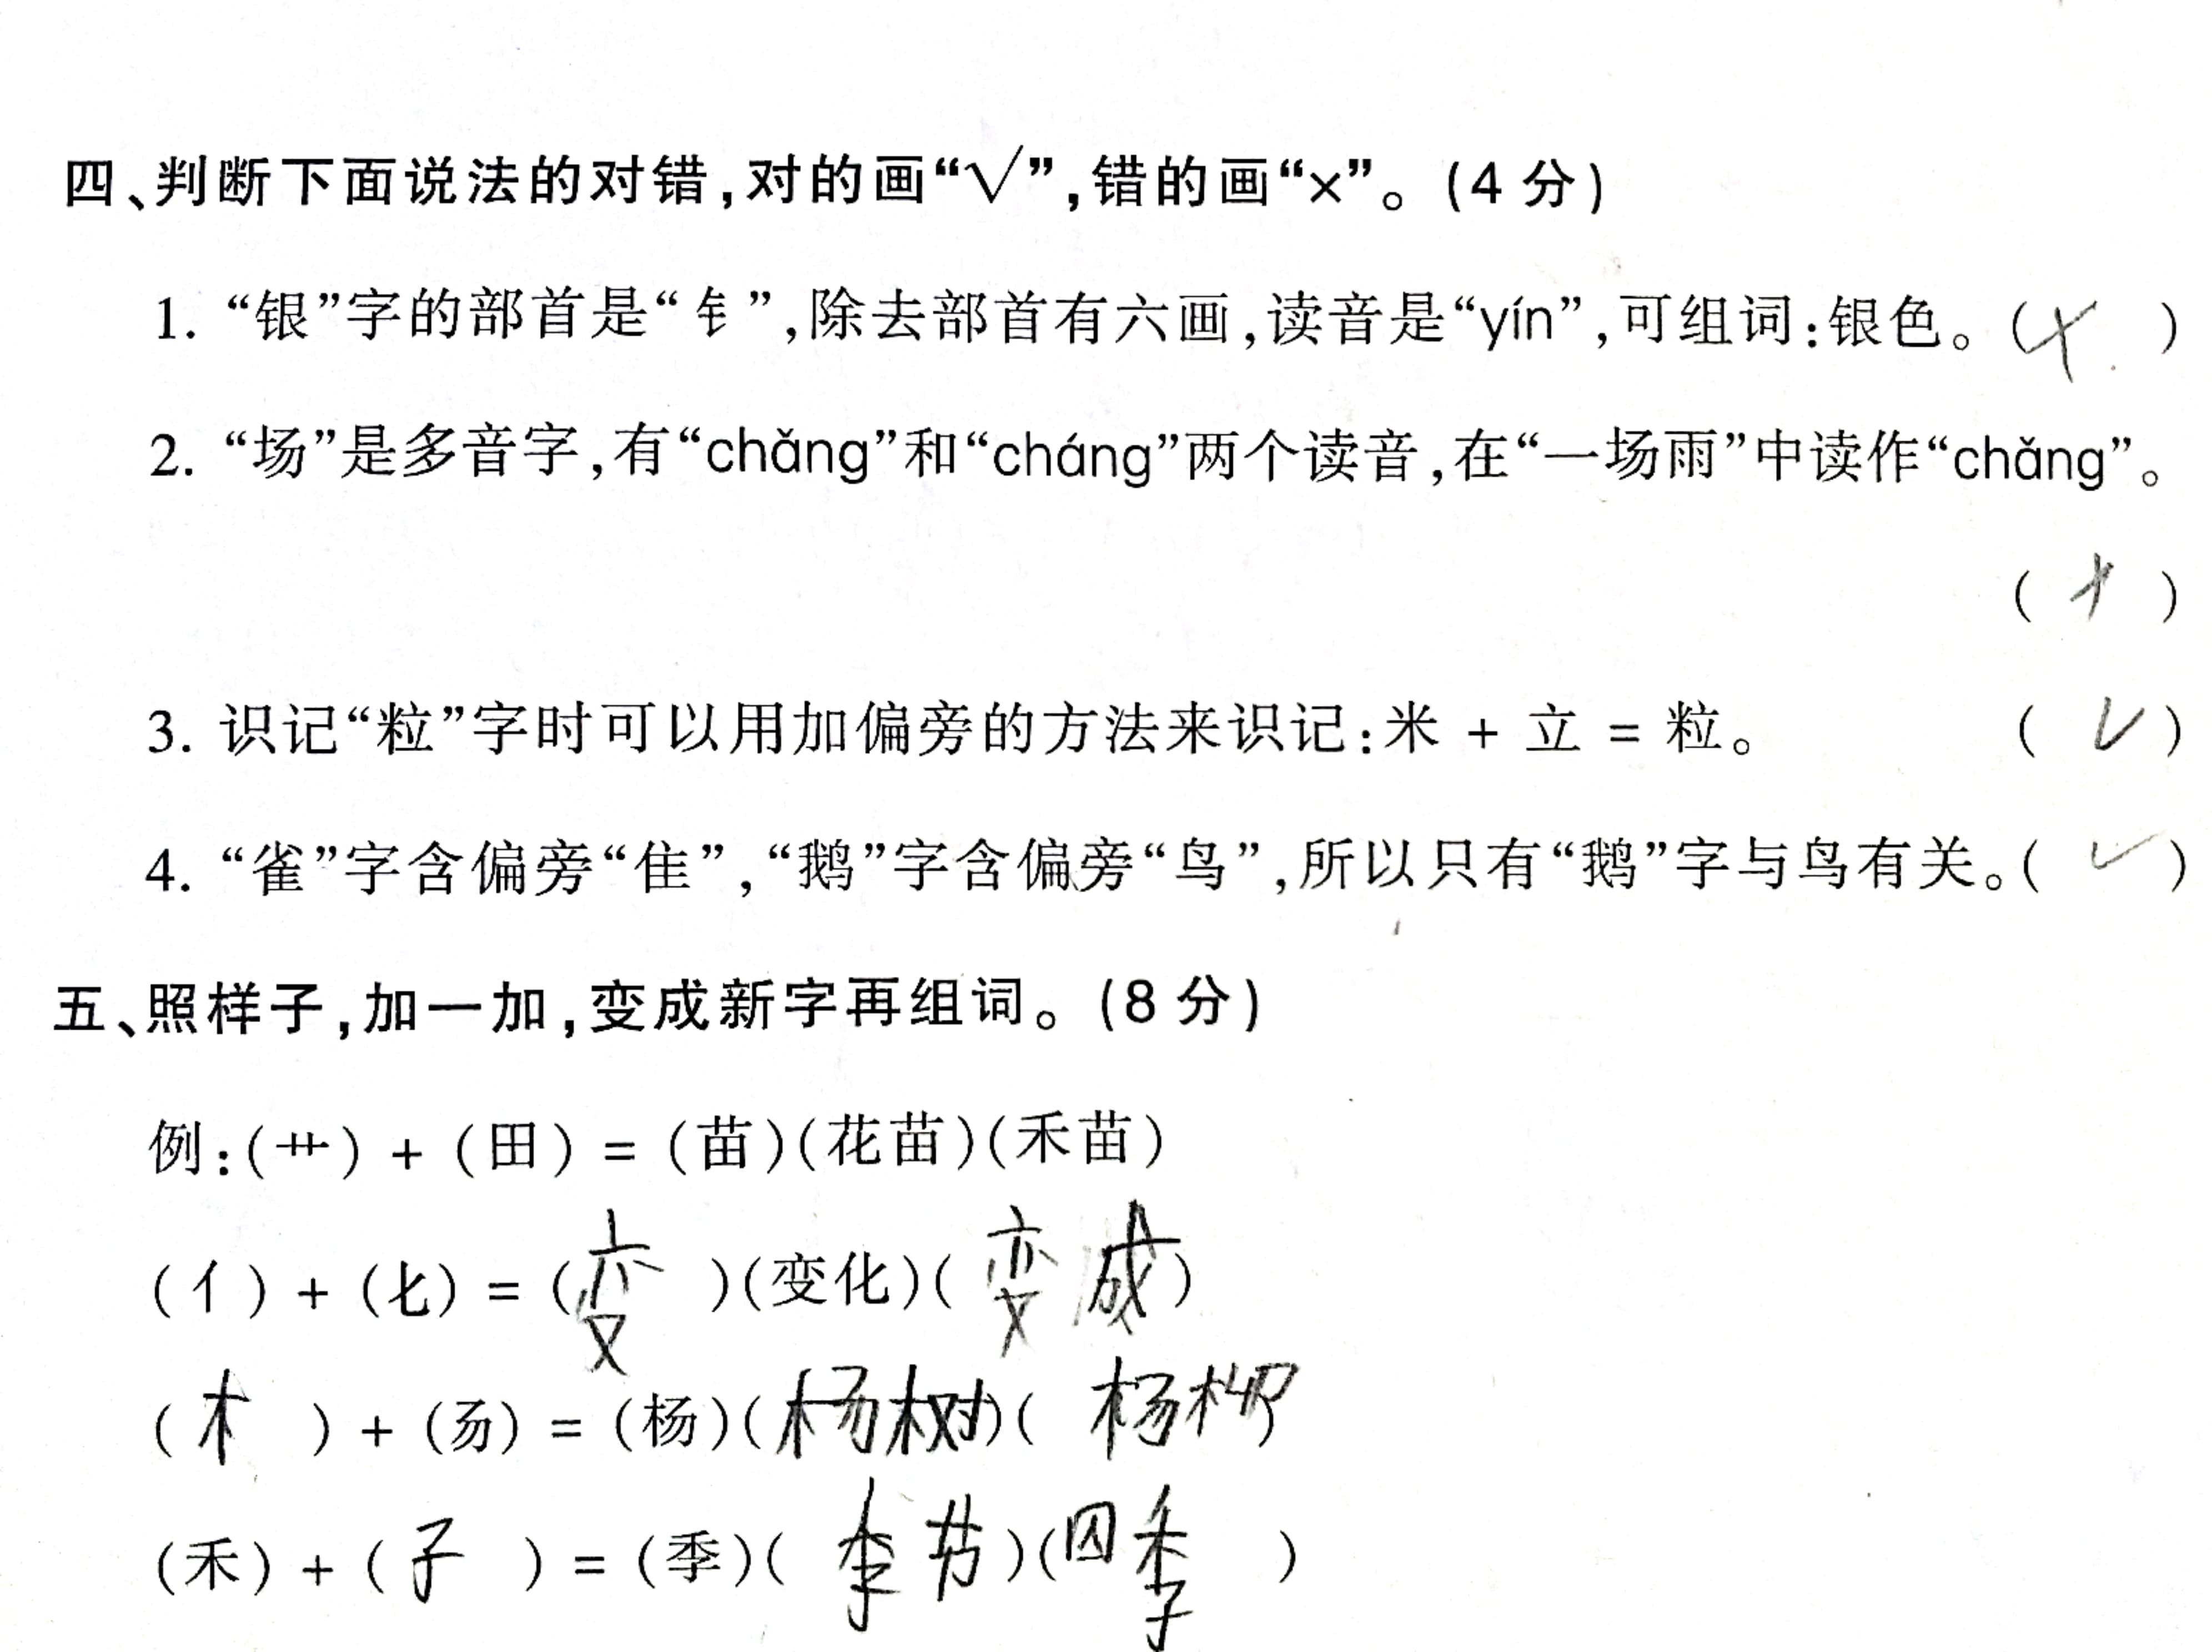 四、判断下面说法的对错,对的画“√”,错的画“×”。(4 分)
1. “银”字的部首是“钅”,除去部首有六画,读音是“yín”,可组词:银色。(×)
2. “场”是多音字,有“chǎng”和“cháng”两个读音,在“一场雨”中读作“chǎng”。
(×)
3. 识记“粒”字时可以用加偏旁的方法来识记:米 + 立 = 粒。 (√)
4. “雀”字含偏旁“隹”,“鹅”字含偏旁“鸟”,所以只有“鹅”字与鸟有关。(√)
五、照样子,加一加,变成新字再组词。(8 分)
例:(艹) + (田) = (苗)(花苗)(禾苗)
(亻) + (匕) = (变)(变化)(变成)
(木) + (昜) = (杨)(杨树)(杨柳)
(禾) + (子) = (季)(季节)(四季)